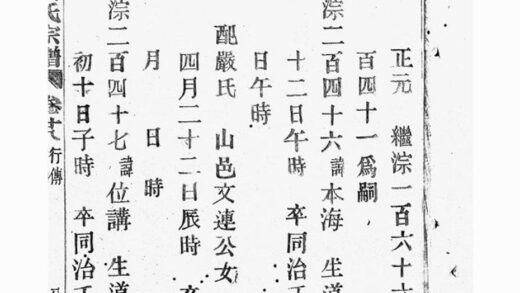 正元 繼淙一百六十
百四十一爲嗣
淙二百四十六諱本海 生道
十二日午時 卒同治
日午時
配嚴氏 山邑文連公女
四月二十二日辰時
月 日 時
淙二百四十七諱位講 生道
初十日子時 卒同治
氏宗譜 卷 行傳